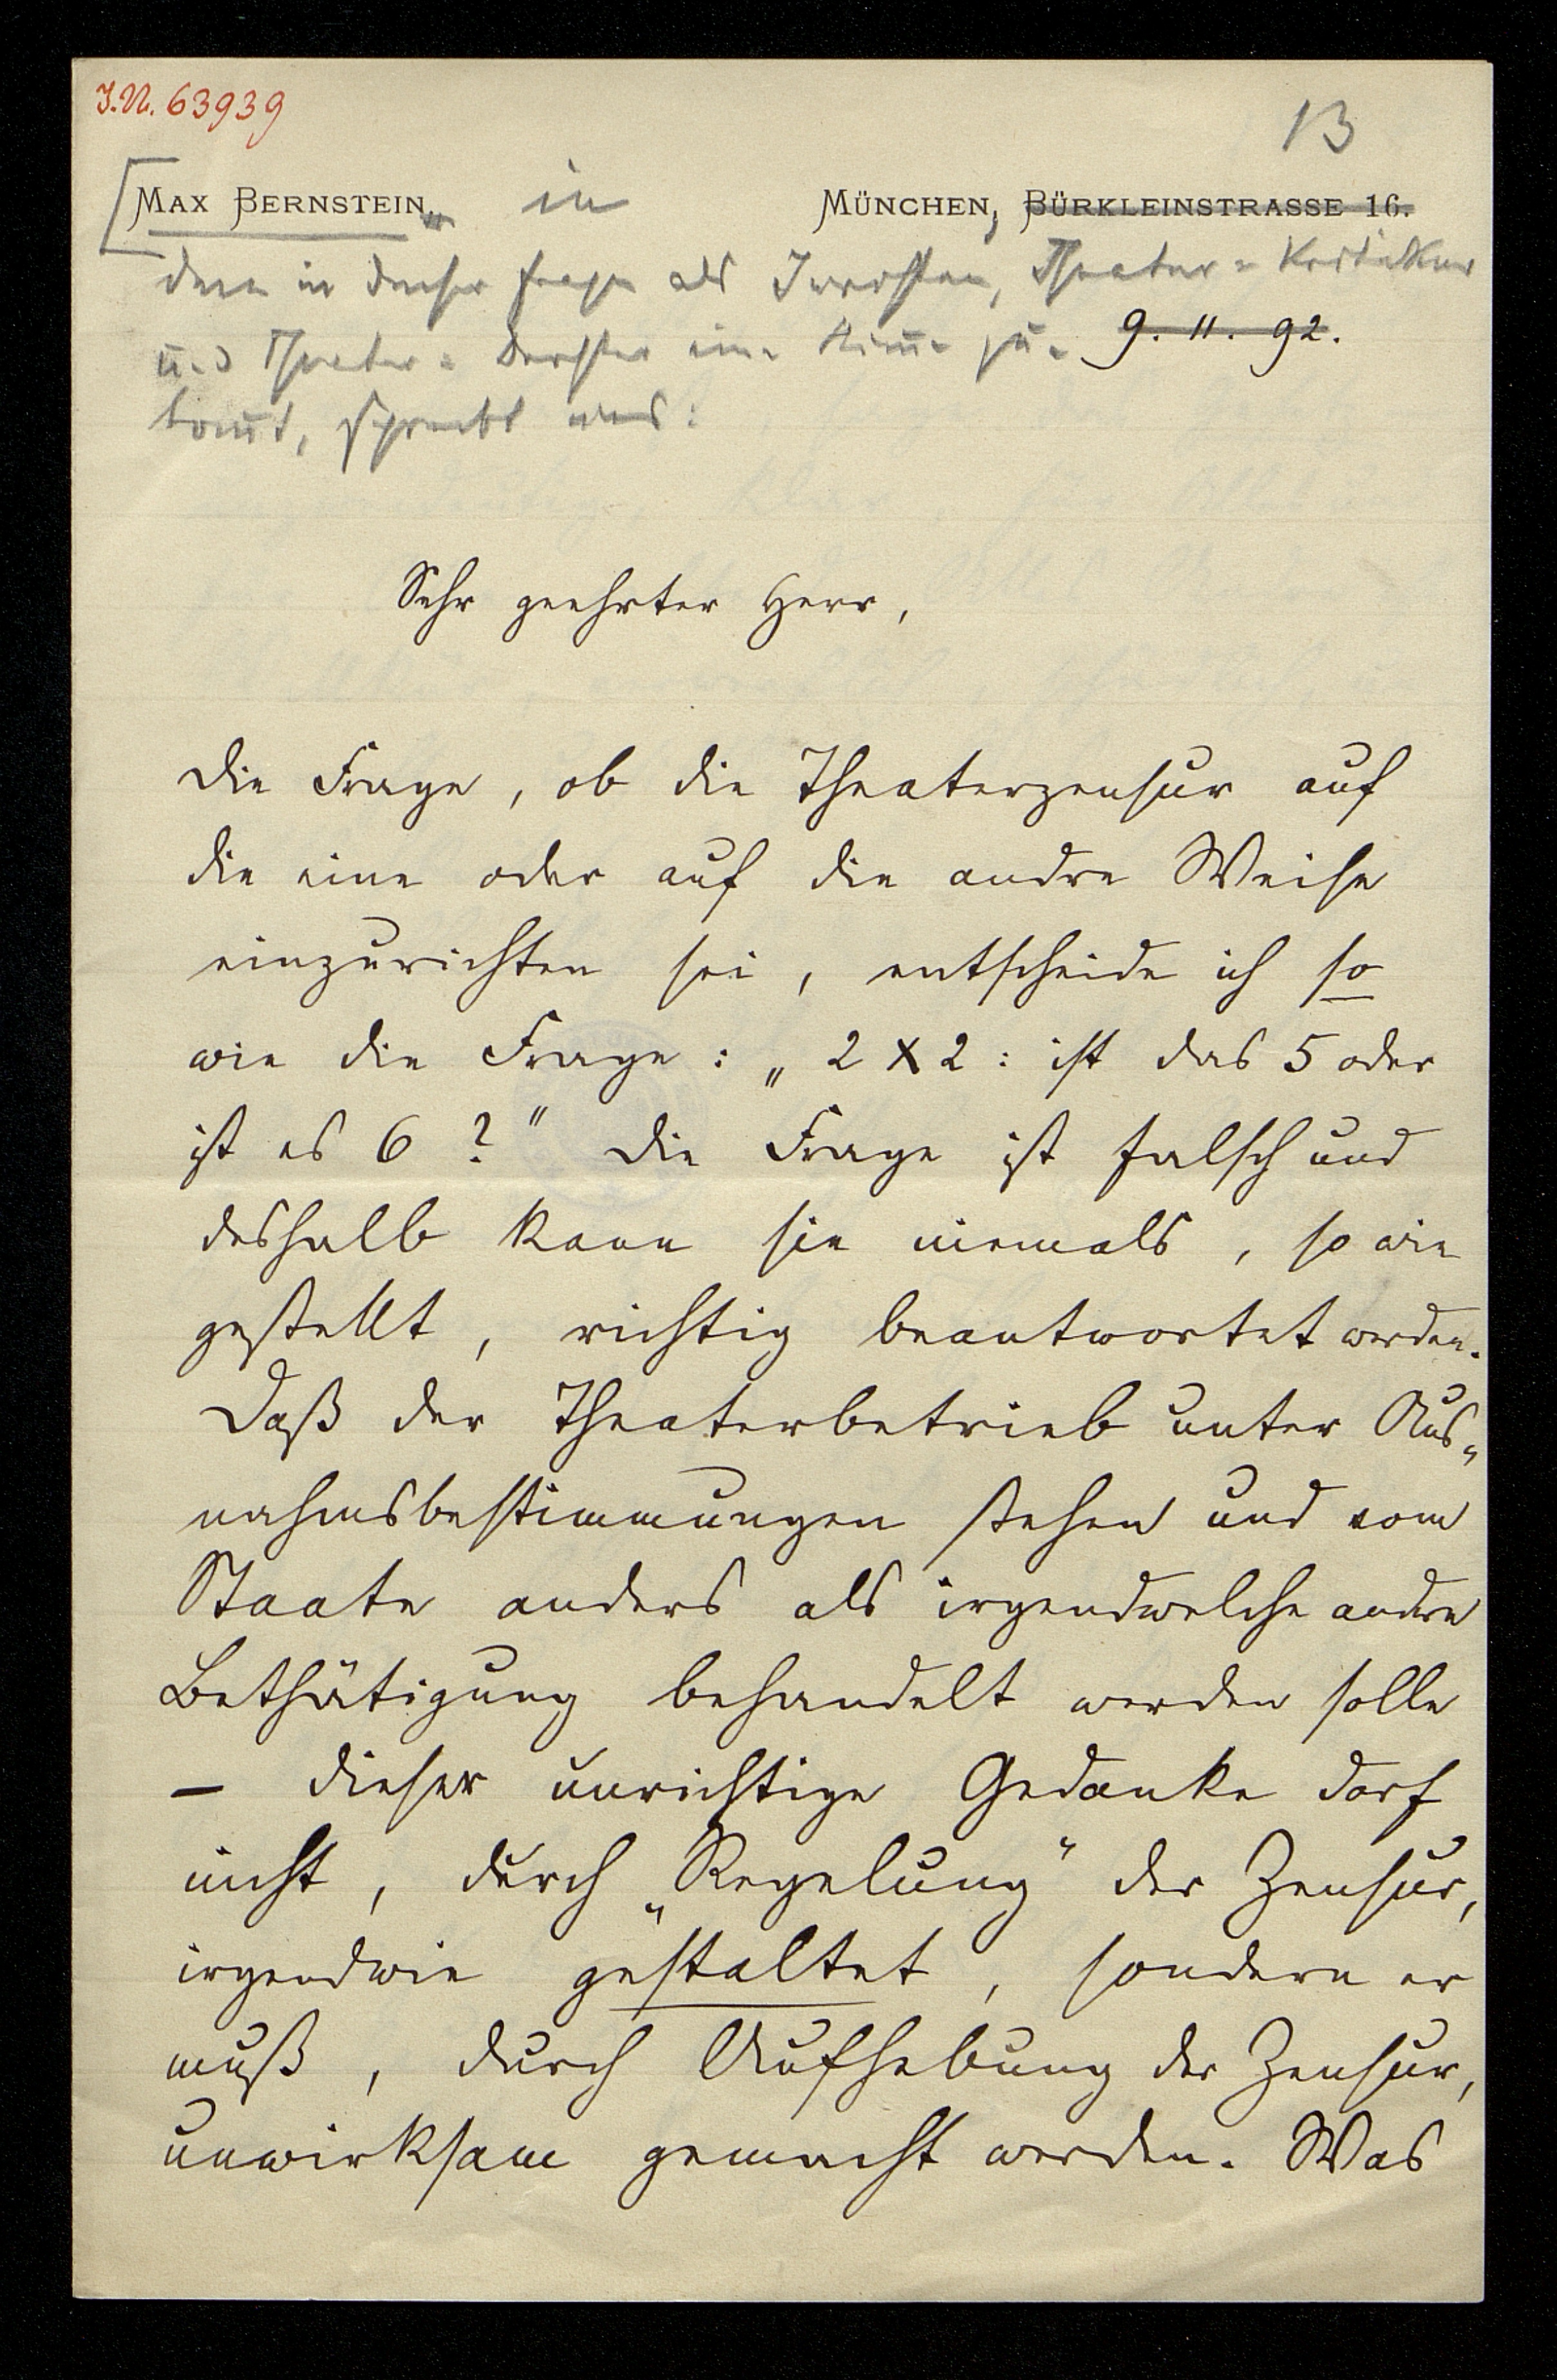 J.N. 63939
13
MAX BERNSTEIN, in MÜNCHEN, BÜRKLEINSTRASSE 16.
dem in dieser Frage als Juristen, Theater-Kritiker
und Theater-Dichter eine Stim̅e zu- 9. 11. 92.
kom̅t, schreibt uns:
Sehr geehrter Herr,
die Frage, ob die Theaterzensur auf
die eine oder auf die andre Weise
einzurichten sei, entscheide ich so
wie die Frage: „2 X 2: ist das 5 oder
ist es 6?" Die Frage ist falsch und
deshalb kann sie niemals, so wie
gestellt, richtig beantwortet werden.
Daß der Theaterbetrieb unter Aus-
nahmsbestimmungen stehen und vom
Staate anders als irgendwelche andre
Bethätigung behandelt werden solle
– dieser unrichtige Gedanke darf
nicht, durch „Regelung" der Zensur,
irgendwie gestaltet, sondern er
muß, durch Aufhebung der Zensur,
unwirksam gemacht werden. Was